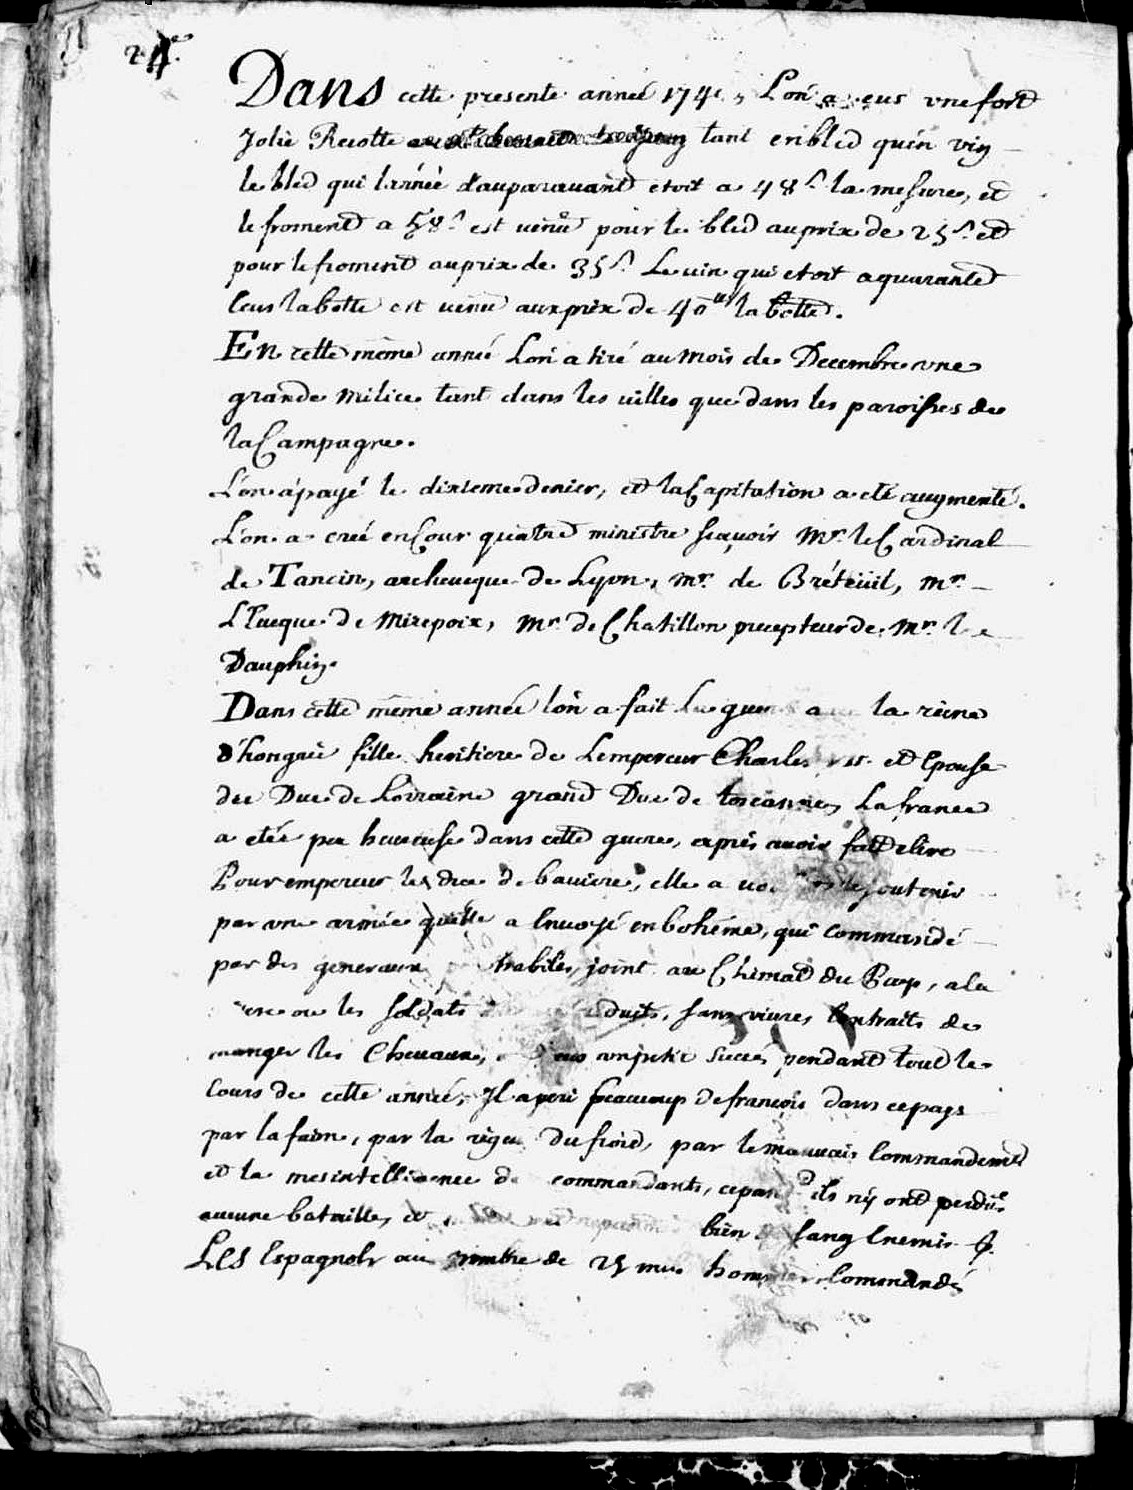 24.
Dans cette presente anneé 174 , Lon a eus vne fort
Jolie Recolte tant en bled qu'en vin
le bled qui lanneé dauparavant etoit a 48 s. la mesure, et
le froment a 58 s. est venu pour le bled au prix de 25 s. et
pour le froment au prix de 35 s. Le vin qui etoit a quarante
la botte est venu aux prix de 40 la botte.
En cette même anneé Lon a tiré au Mois de Decembre vne
grande Milice tant dans les villes que dans les paroisses de
la Campagne.
L'on a payé le dixieme denier, et la Capitation a eté augmenté.
L'on a creé en Cour quatre ministre scavoir Mr. le Cardinal
de Tancin, archeveque de Lyon, mr. de Bréteüil, mr.
L'Eveque de Mirepoix, Mr. de Chatillon precepteur de Mr. le
Dauphin.
Dans cette même anneé lon a fait la guerre a la reine
d'hongrie fille heritiere de Lempereur Charles et Epouse
du Duc de Lorraine grand Duc de toscanne, La france
a eteé peu heureuse dans cette guere, apres avoir fait elire
Pour empereur le duc de baviere, elle a soutenir
par vne armeé quelle a Envoyé en bohéme, qui commandé
par des generaux joint au Climat du Pays, a la
ou les soldats sans vivres contraits de
manger les Chevaux, petit succés pendant tout le
Cours de cette anneé, Il a peri beaucoup de francois dans ce pays
par la faim, par la du froid, par le mauvais Commandement
et la mesintelligence de commandants, ils n'y ont perdu
aucune bataille, et bien sang Enemis
Les Espagnols au nombre de 25 hommes Commandés